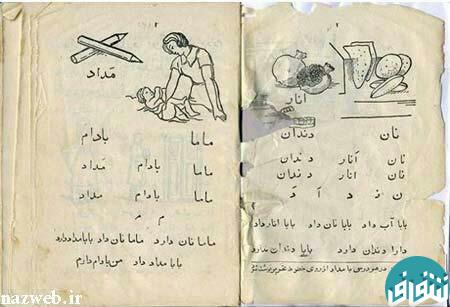 ۲
انار
نان دندان
نان انار دندان
نان انار دندان
ن ز د آ د
بابا آب داد بابا نان داد بابا انار داد
دارا دندان دارد بابا دندان دارد
۳
مداد
ماما بادام
ماما بادام مداد
ماما بادام مداد
م م
ماما نان دارد ماما نان داد بابا مداد دارد
بابا مداد داد من بادام دارم
nazweb.ir